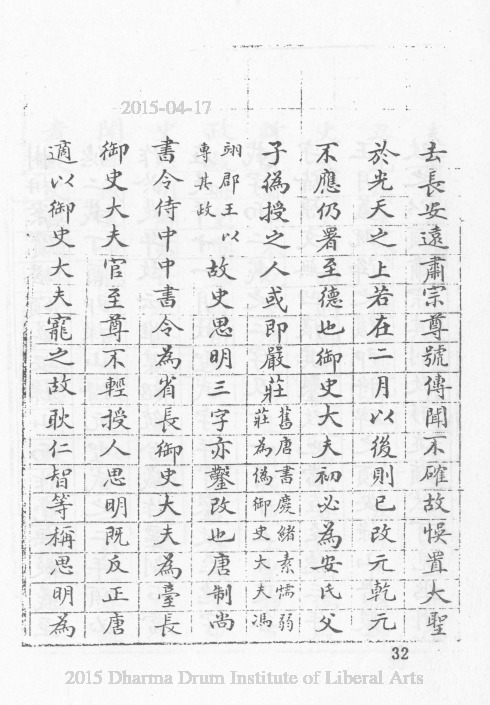 2015-04-17
去長安遠肅宗尊號傳聞不確故悞置大聖
於光天之上若在二月以後則已改元乾元
不應仍署至德也御史大夫初必為安氏父
子偽授之人或即嚴莊舊唐書慶緒素懦弱
莊為偽御史大夫馮
翊郡王以
專其政故史思明三字亦鑿改也唐制尚
書令侍中中書令為省長御史大夫為臺長
御史大夫官至尊不輕授人思明既反正唐
適以御史大夫寵之故耿仁智等稱思明為
32
2015 Dharma Drum Institute of Liberal Arts